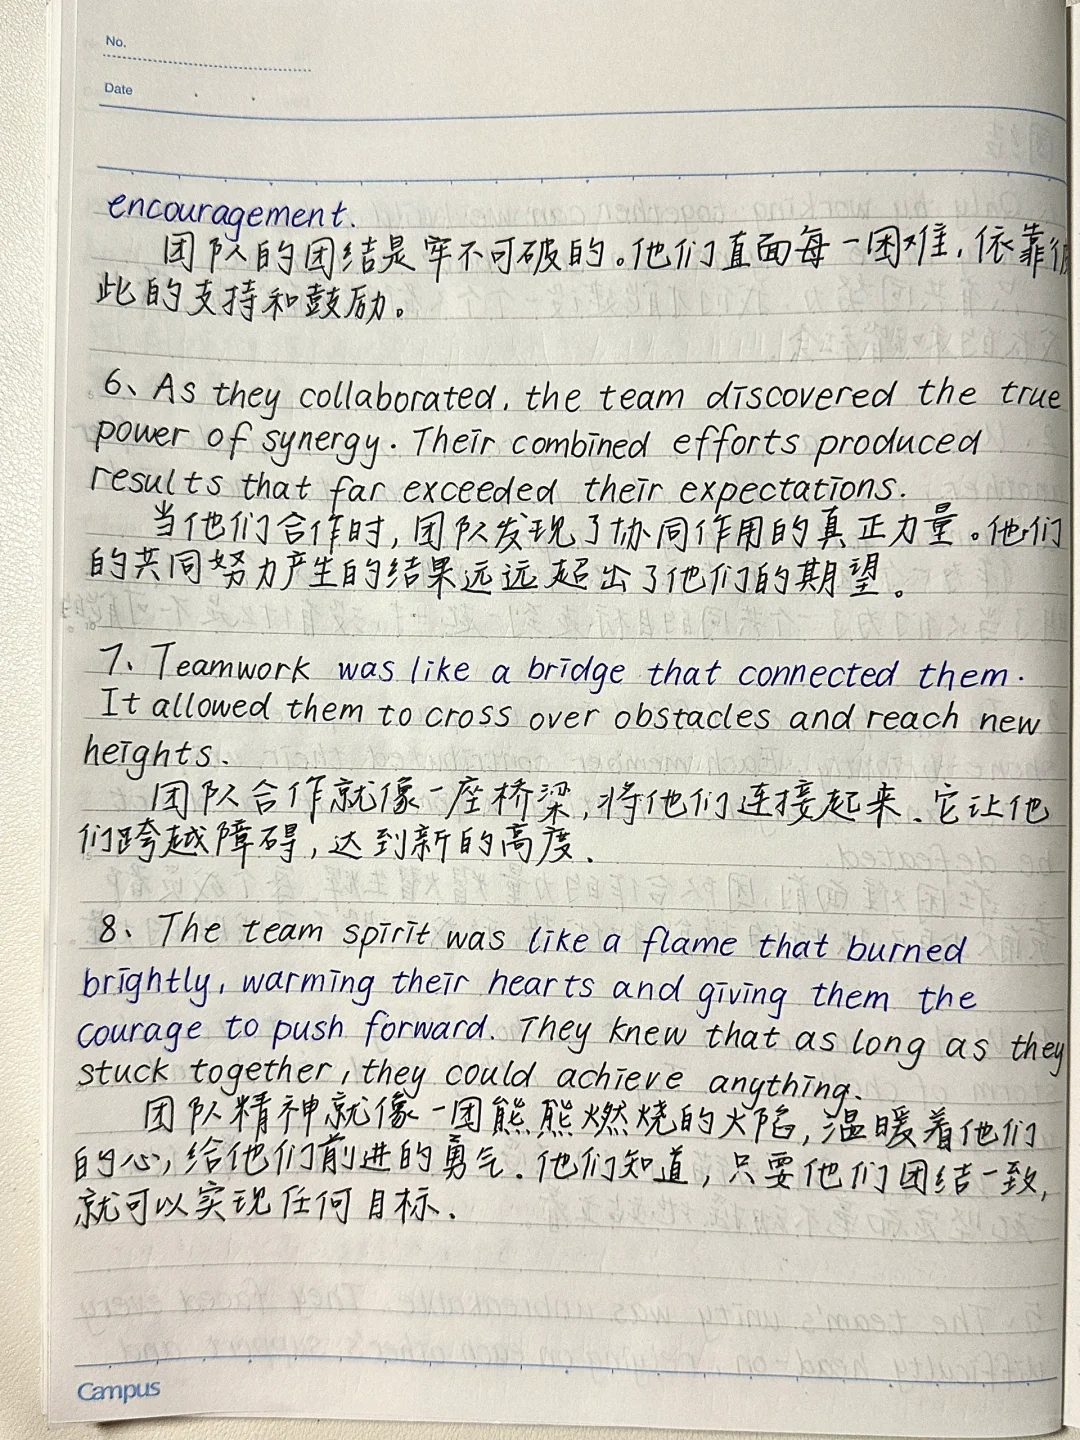 No.
Date
encouragement.
团队的团结是牢不可破的。他们直面每一困难,依靠彼
此的支持和鼓励。
6、As they collaborated, the team discovered the true
power of synergy. Their combined efforts produced
results that far exceeded their expectations.
当他们合作时,团队发现了协同作用的真正力量。他们
的共同努力产生的结果远远超出了他们的期望。
7、Teamwork was like a bridge that connected them.
It allowed them to cross over obstacles and reach new
heights.
团队合作就像一座桥梁,将他们连接起来、它让他
们跨越障碍,达到新的高度.
8、The team spirit was like a flame that burned
brightly, warming their hearts and giving them the
courage to push forward. They knew that as long as they
stuck together, they could achieve anything.
团队精神就像一团熊熊燃烧的火陷,温暖着他们
的心,给他们前进的勇气.他们知道,只要他们团结一致,
就可以实现任何目标.
Campus